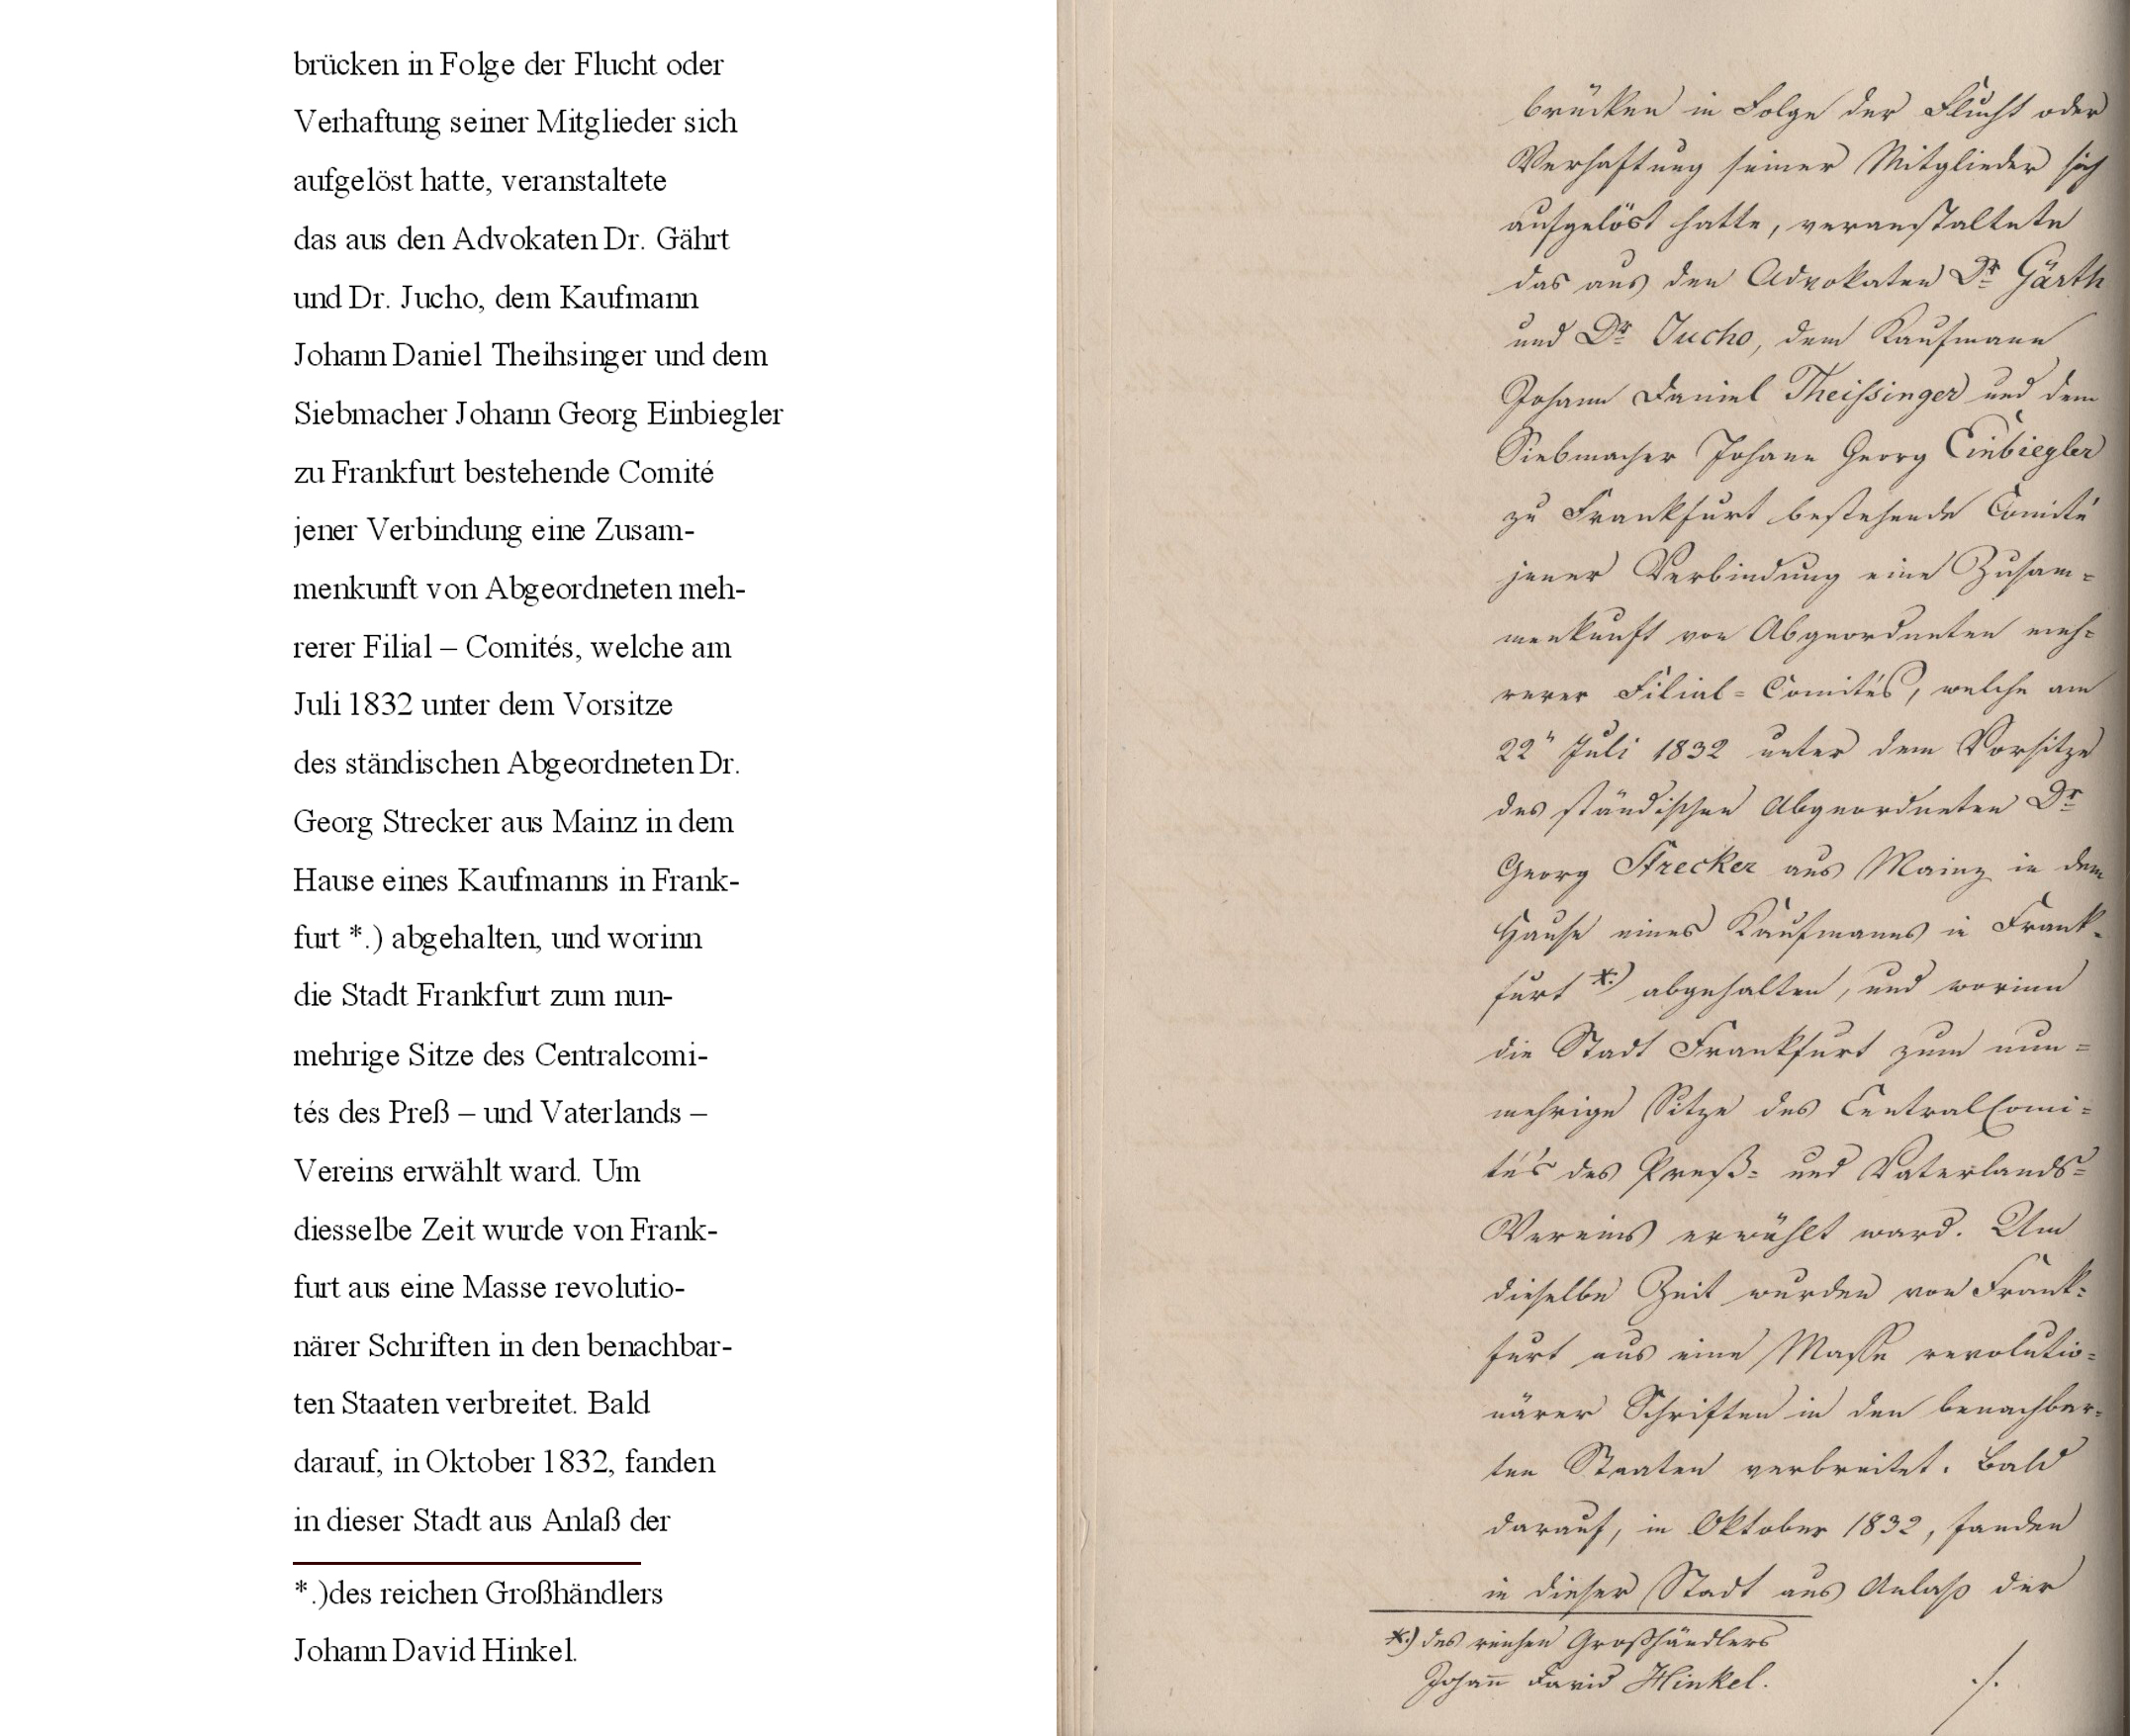 brücken in Folge der Flucht oder
Verhaftung seiner Mitglieder sich
aufgelöst hatte, veranstaltete
das aus den Advokaten Dr. Gährt
und Dr. Jucho, dem Kaufmann
Johann Daniel Theihsinger und dem
Siebmacher Johann Georg Einbiegler
zu Frankfurt bestehende Comité
jener Verbindung eine Zusam-
menkunft von Abgeordneten meh-
rerer Filial – Comités, welche am
Juli 1832 unter dem Vorsitze
des ständischen Abgeordneten Dr.
Georg Strecker aus Mainz in dem
Hause eines Kaufmanns in Frank-
furt *.) abgehalten, und worinn
die Stadt Frankfurt zum nun-
mehrige Sitze des Centralcomi-
tés des Preß – und Vaterlands –
Vereins erwählt ward. Um
diesselbe Zeit wurde von Frank-
furt aus eine Masse revolutio-
närer Schriften in den benachbar-
ten Staaten verbreitet. Bald
darauf, in Oktober 1832, fanden
in dieser Stadt aus Anlaß der
*.)des reichen Großhändlers
Johann David Hinkel.
brücken in Folge der Flucht oder
Verhaftung seiner Mitglieder sich
aufgelöst hatte, veranstaltete
das aus den Advokaten Dr Gärth
und Dr Jucho, dem Kaufmann
Johann Daniel Theissinger und dem
Siebmacher Johann Georg Einbiegler
zu Frankfurt bestehende Comité
jener Verbindung eine Zusam=
menkunft von Abgeordneten meh=
rerer Filial=Comités, welche am
22" Juli 1832 unter dem Vorsitze
des ständischen Abgeordneten Dr
Georg Strecker aus Mainz in dem
Hause eines Kaufmanns in Frank=
furt *.) abgehalten, und worinn
die Stadt Frankfurt zum nun=
mehrige Sitze des CentralComi=
tés des Preß= und Vaterlands=
Vereins erwählt ward. Um
dieselbe Zeit wurden von Frank=
furt aus eine Masse revolutio=
närer Schriften in den benachbar=
ten Staaten verbreitet. Bald
darauf, in Oktober 1832, fanden
in dieser Stadt aus Anlaß der
*.) des reichen Großhändlers
Johann David Hinkel.
./.